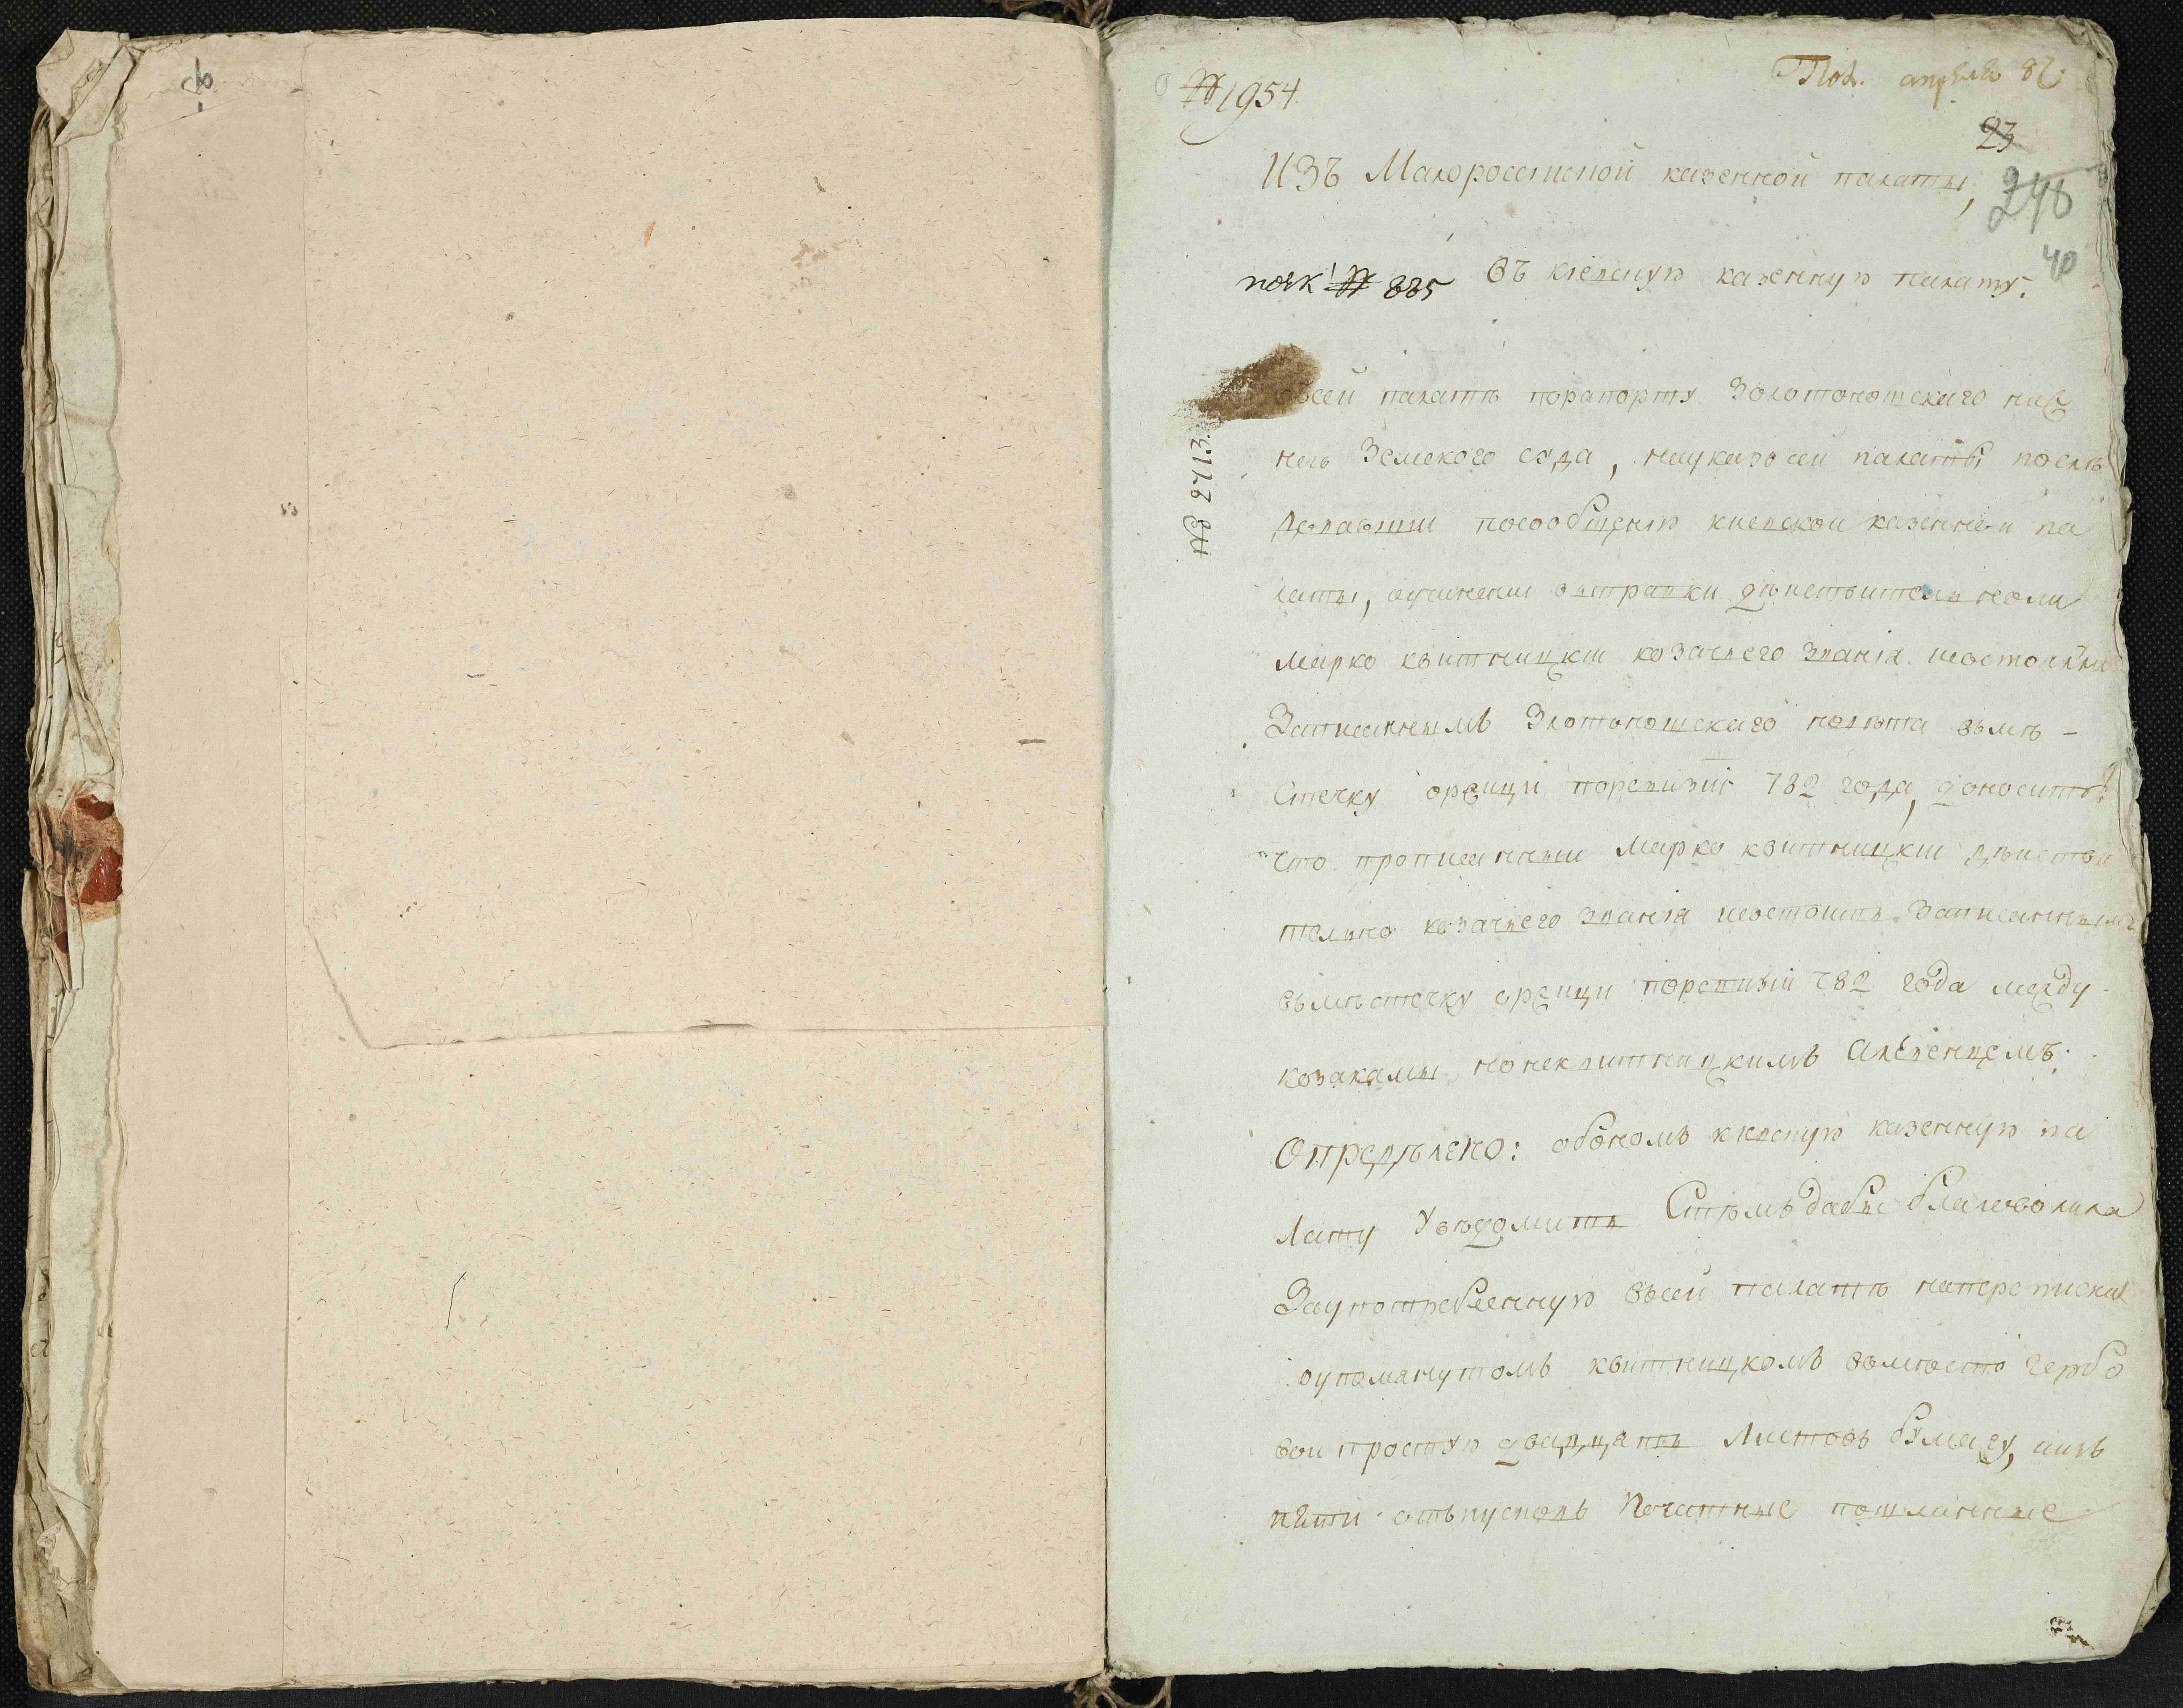 № 1954
Пол. апреля 8г.
23
248
40
Изъ Малоросетской казенной палаты,
№ 885 Въ киевскую казенную палату.
№ 2713.
Въсей палатѣ порапорту Золотоношскаго ниж
него Земского суда, наука́зъ сей палаты послѣ
довавшии посообщению киевской казенной па
латы, оучинении выправки действительноли
марко квитницкии козачьего звания исостоялъли
Записаннымъ Злотоношскаго повѣта въмѣ-
стечку оржици поревизии 782 года, доноситъ:
что прописанныи марко квитницкии действи
тельно козачьего звания исостоитъ Записаннымъ
въмѣстечку оржици поревизии 782 года между
козаками нонеквитницкимъ
Определено: обономъ киевскую казенную па
лату Увѣдомить Стѣмъ дабы благоволила
Заупотребленную въсей палатѣ напереписки
оупомянутомъ квитницкомъ вмѣсто гербо
вои простую двадцать листовъ бумагу, ииъ
пяти отъпусковъ Печатные пошлинные